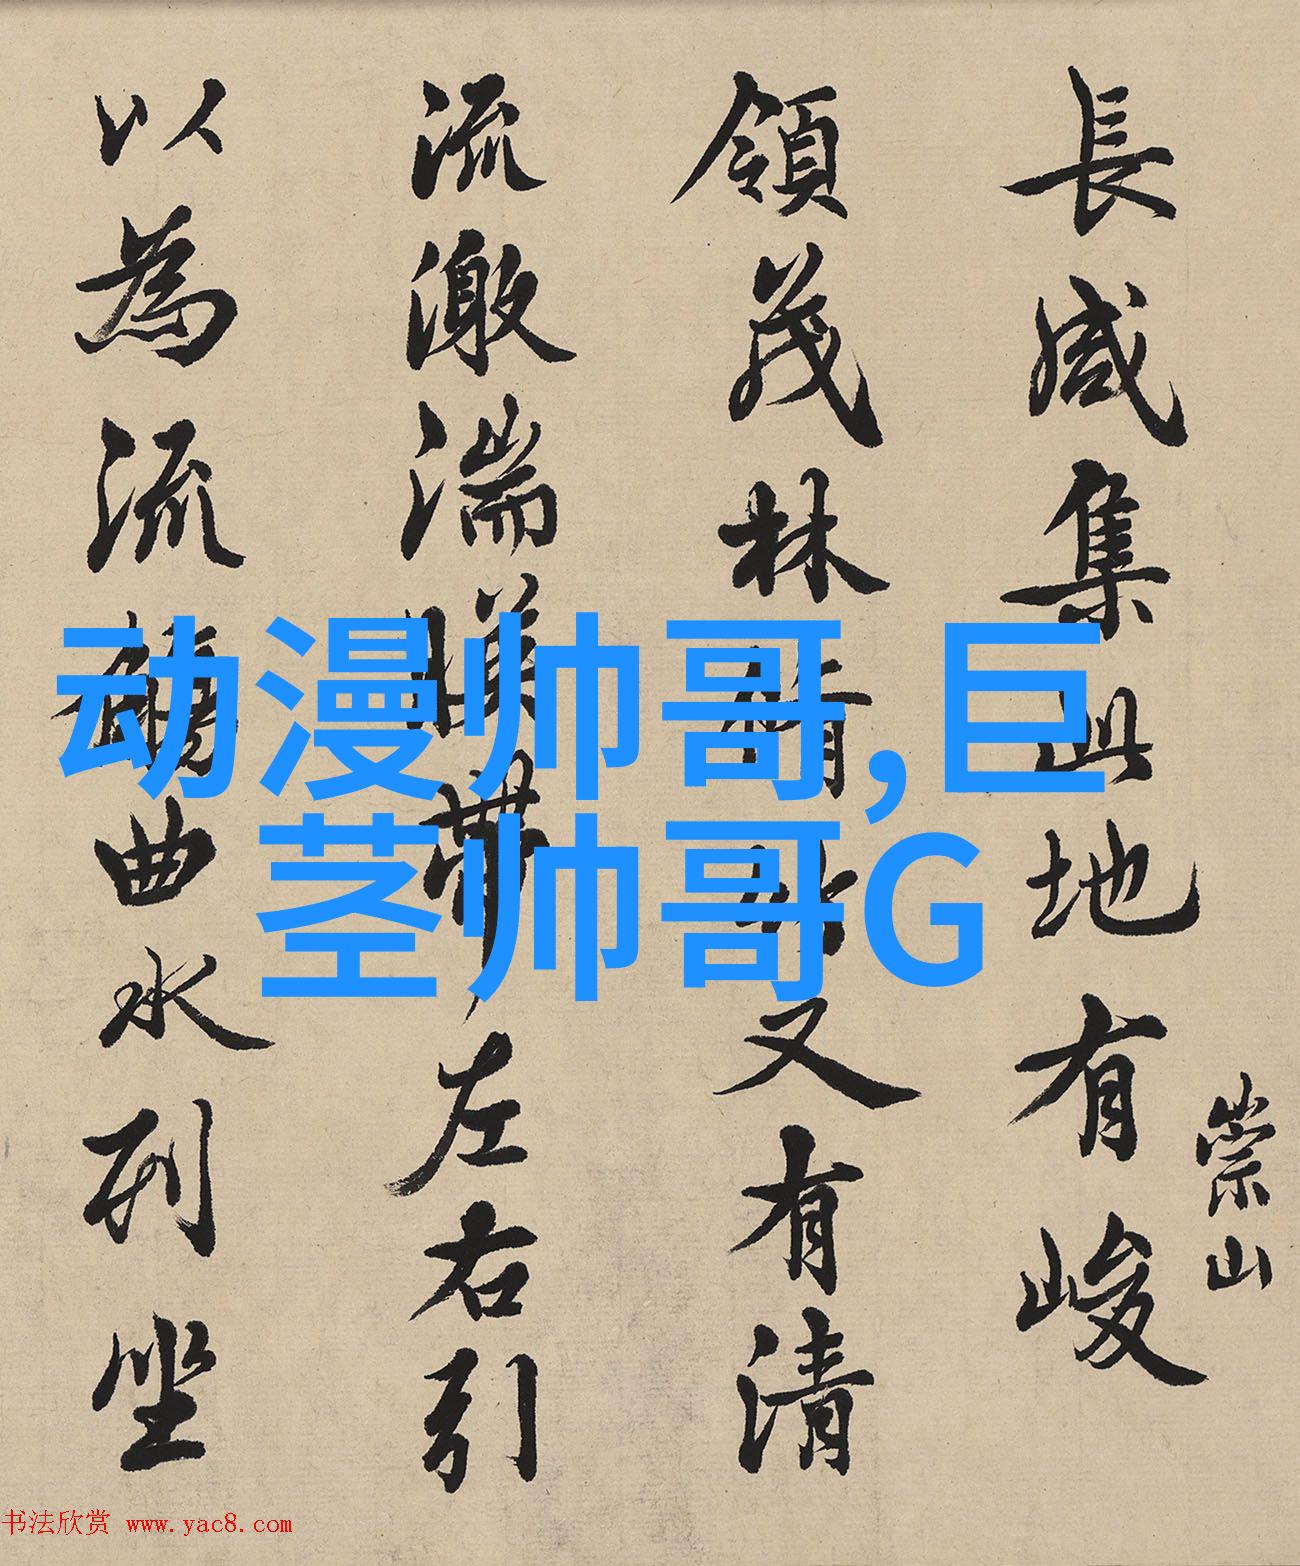 長咸集此地有峻
崇山
領茂林脩竹又有清
流激湍暎帶左右引
以為流觴曲水列坐
动漫帅哥,巨
茎帅哥G
书法欣赏 www.yac8.com